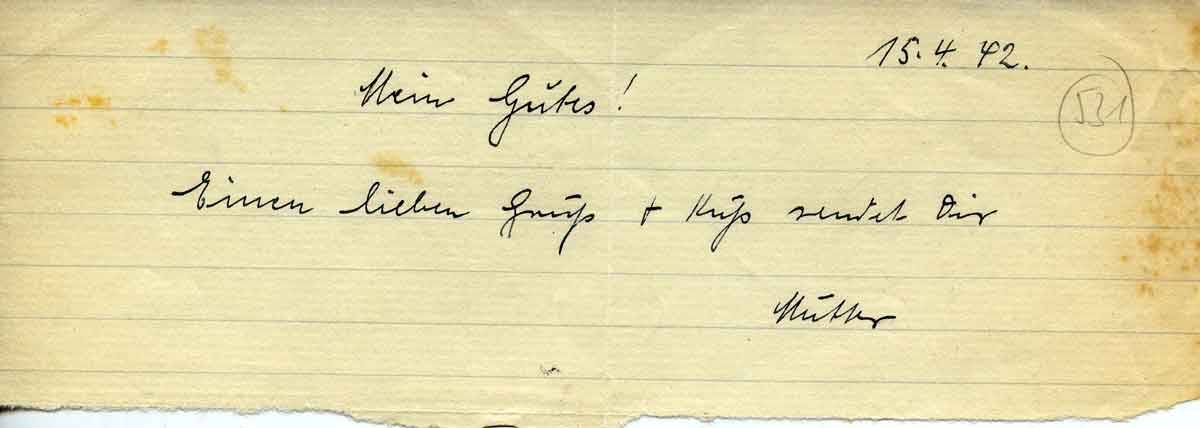 15.4.42.
531
Mein Gutes!
Einen lieben Gruß + Kuß sendet Dir
Mutter